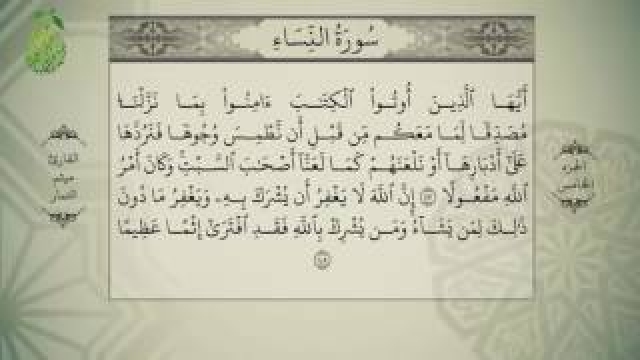 سُورَةُ النِّسَاءِ
أَيُّهَا ٱلَّذِينَ أُوتُوا۟ ٱلْكِتَـٰبَ ءَامِنُوا۟ بِمَا نَزَّلْنَا
مُصَدِّقًا لِّمَا مَعَكُم مِّن قَبْلِ أَن نَّطْمِسَ وُجُوهًا فَنَرُدَّهَا
عَلَىٰٓ أَدْبَارِهَآ أَوْ نَلْعَنَهُمْ كَمَا لَعَنَّآ أَصْحَـٰبَ ٱلسَّبْتِ وَكَانَ أَمْرُ
ٱللَّهِ مَفْعُولًا ٤٧ إِنَّ ٱللَّهَ لَا يَغْفِرُ أَن يُشْرَكَ بِهِۦ وَيَغْفِرُ مَا دُونَ
ذَٰلِكَ لِمَن يَشَآءُ وَمَن يُشْرِكْ بِٱللَّهِ فَقَدِ ٱفْتَرَىٰٓ إِثْمًا عَظِيمًا
٤٨
الجزء
الخامس
القارئ
ميثم
التمار